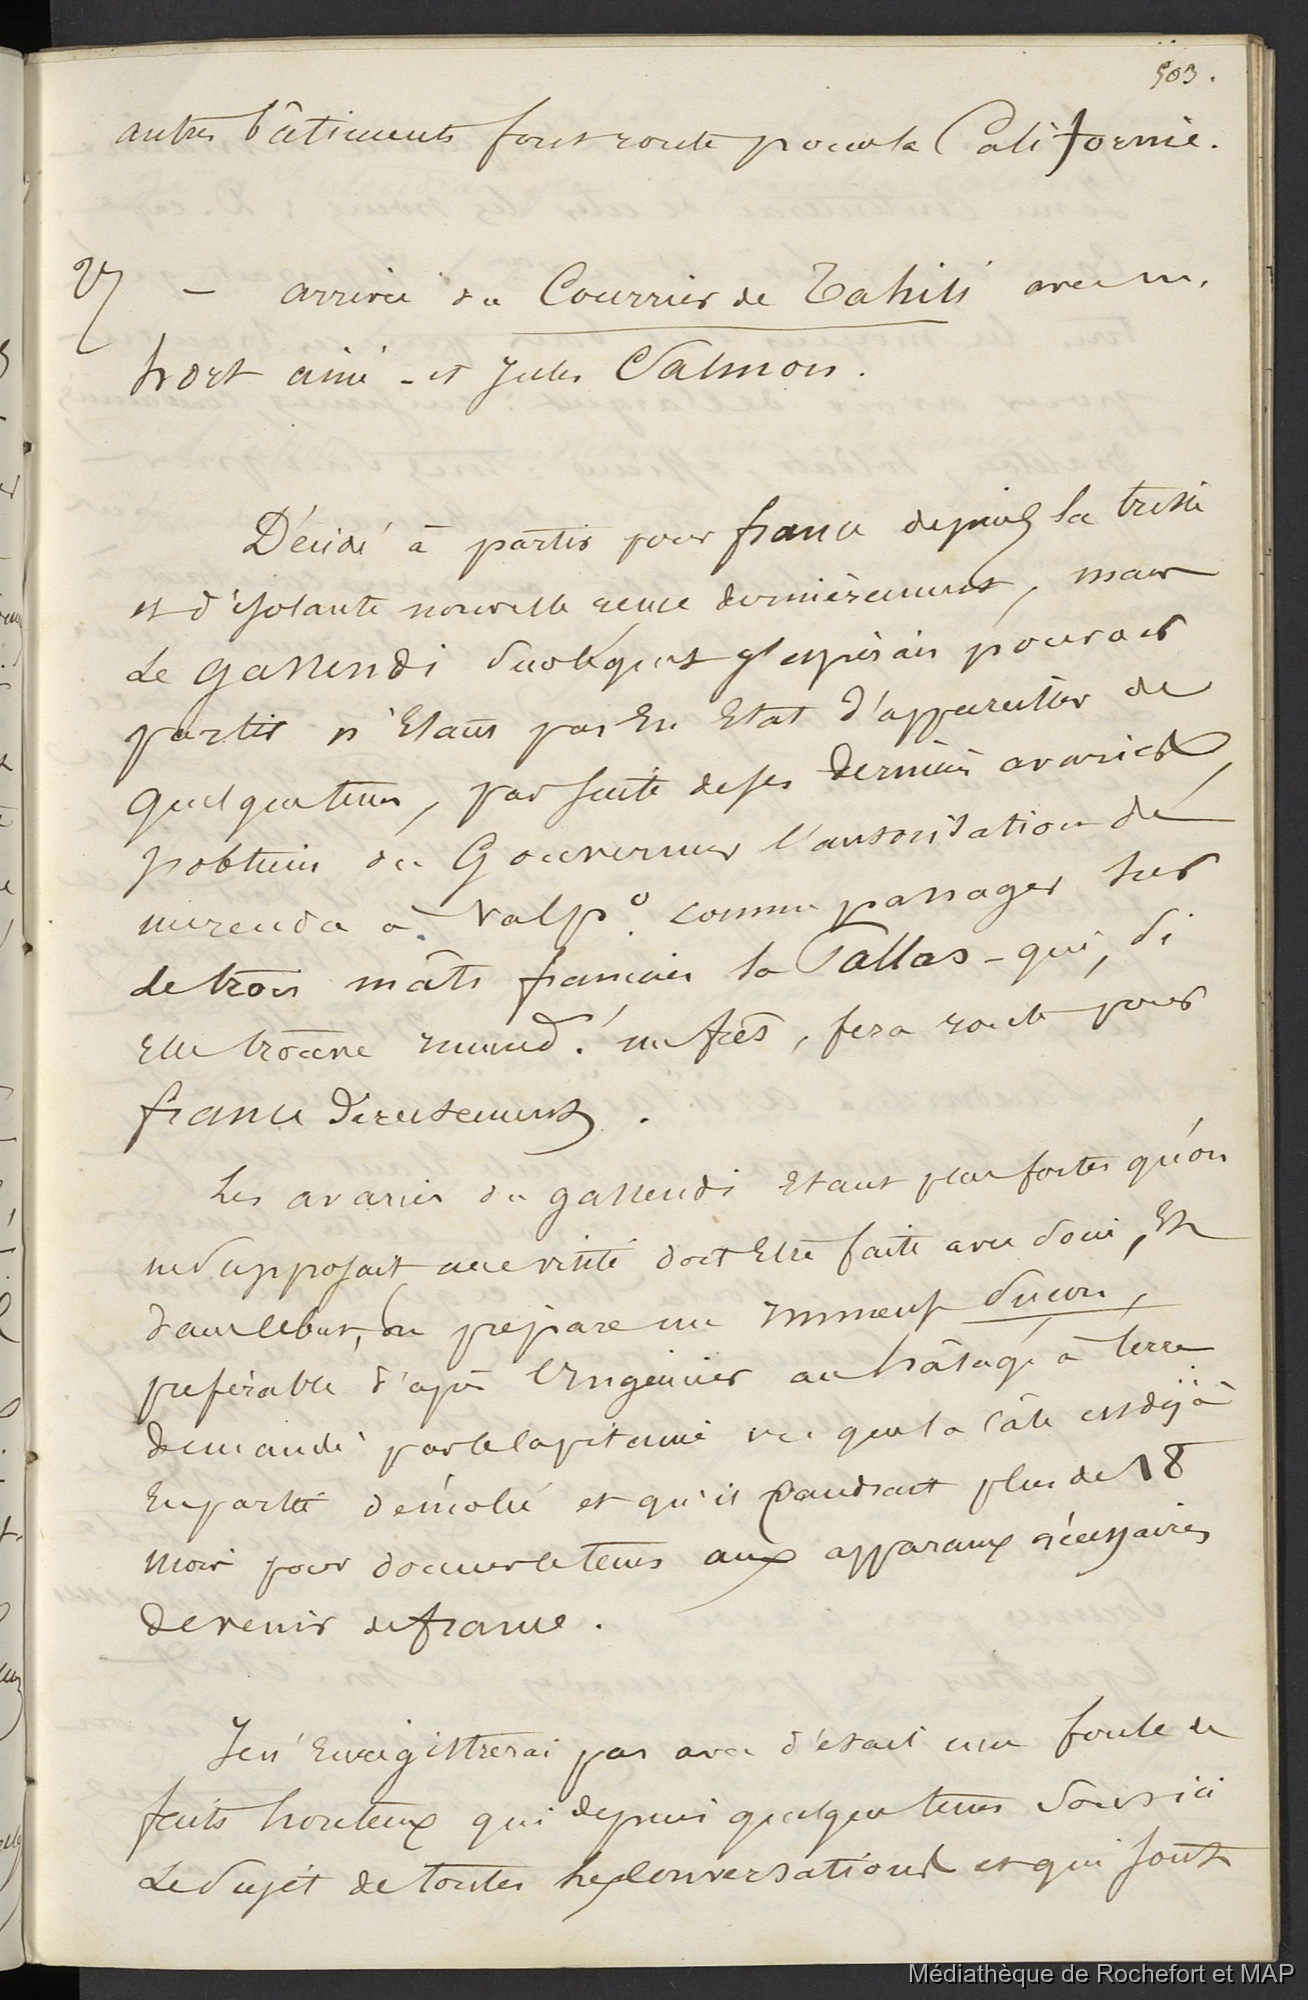 503.
autres bâtiments font route pour la Californie.
V — arrivée du Courrier de Tahiti avec m.
hort ainé - et Jules Salmon.
Décidé à partir pour france depuis la triste
et désolante nouvelle reçue dernièrement, mais
Le Gassendi sur lequel j'espérais pouvoir
partir n'Etant pas En Etat d'appareiller de
quelque tems, par suite de ses dernières avaries,
j'obtiens du Gouverneur l'autorisation de
me rendre à Valpo. comme passager sur
le trois mâts français la Pallas - qui, si
elle trouve immed.t un frêt, fera route pour
france directement.
Les avaries du Gassendi etant plus fortes qu'on
ne supposait une visite doit Etre faite avec soin, Et
dans ce but, on prépare un
préférable d'après l'Ingénieur au hâlage à terre
demandé par le Capitaine vu que la câle est déjà
En partie démolie et qu'il faudrait plus de 18
mois pour donner le tems aux apparaux nécessaires
de venir de france.
Je n'Enregistrerai pas avec détail une foule de
faits honteux qui depuis quelque tems sont ici
Le sujet de toutes les Conversations et qui sont
Médiathèque de Rochefort et MAP